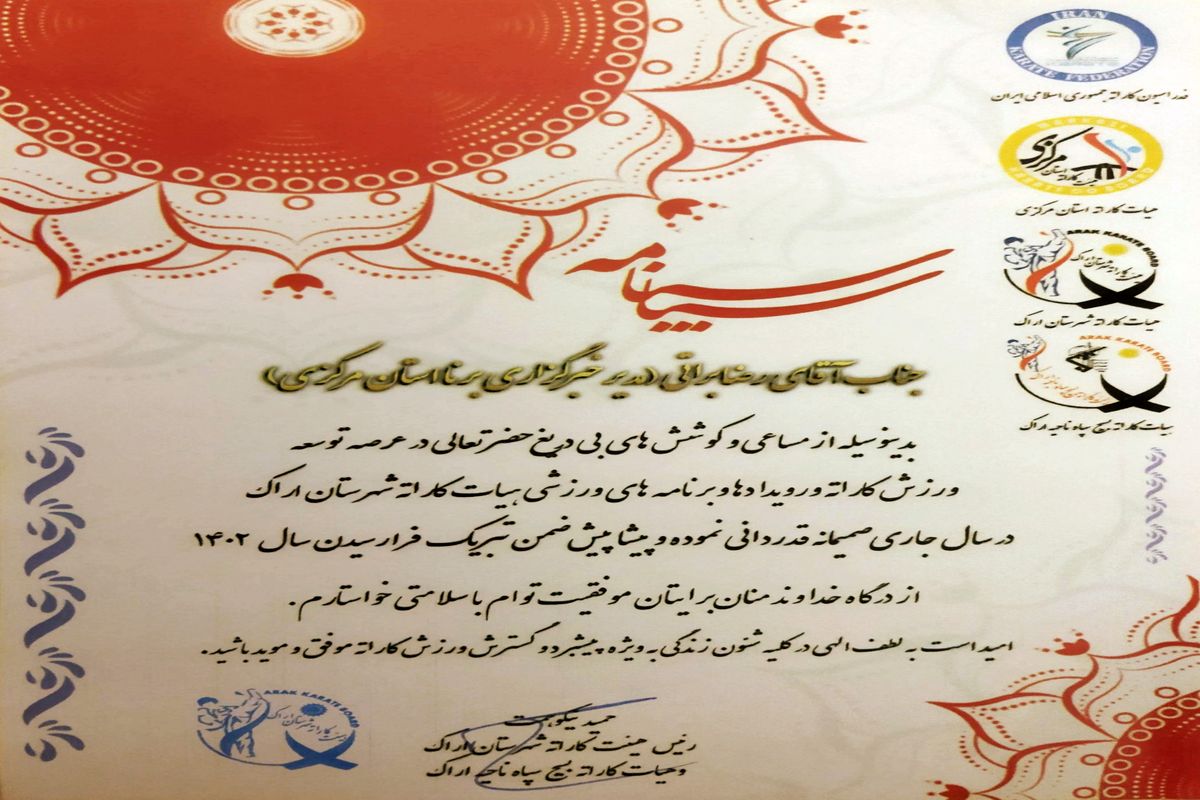 IRAN
KARATE FEDERATION
فدراسیون کاراته جمهوری اسلامی ایران
MARKAZI
KARATE DO BOARD
هیات کاراته استان مرکزی
هیات کاراته استان مرکزی
ARAK KARATE BOARD
هیئت کاراته شهرستان اراک
هیات کاراته شهرستان اراک
ARAK KARATE BOARD
هیات کاراته بسیج سپاه ناحیه اراک
سپاسنامه
جناب آقای رضا براتی (مدیر خبرگزاری برنا استان مرکزی)
بدینوسیله از مساعی و کوشش های بی دریغ حضرتعالی در عرصه توسعه
ورزش کاراته و رویدادها و برنامه های ورزشی هیات کاراته شهرستان اراک
در سال جاری صمیمانه قدردانی نموده و پیشاپیش ضمن تبریک فرا رسیدن سال ۱۴۰۲
از درگاه خداوند منان برایتان موفقیت توام با سلامتی خواستارم.
امید است به لطف الهی در کلیه شئون زندگی به ویژه پیشبرد و گسترش ورزش کاراته موفق و موید باشید.
حمید نیکوهمت
رئیس هیئت کاراته شهرستان اراک
و هیات کاراته بسیج سپاه ناحیه اراک
ARAK KARATE BOARD
هیئت کاراته شهرستان اراک